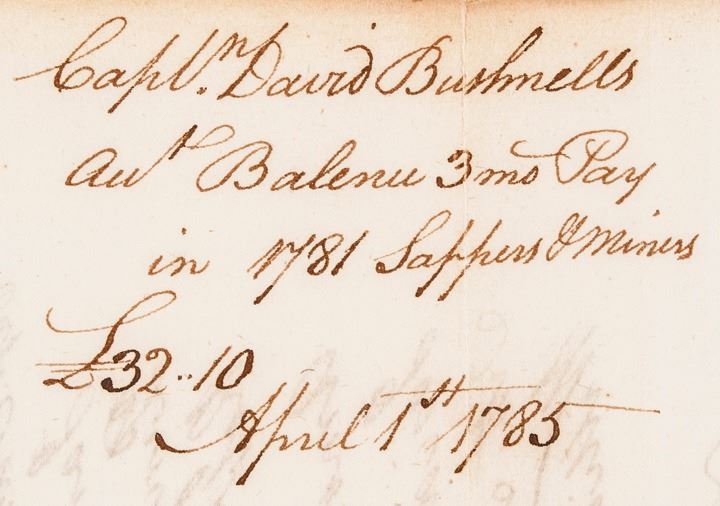 Captn. David Bushnells
Acct Balence 3 mo Pay
in 1781 Sappers & Miners
£32..10
April 1st 1785